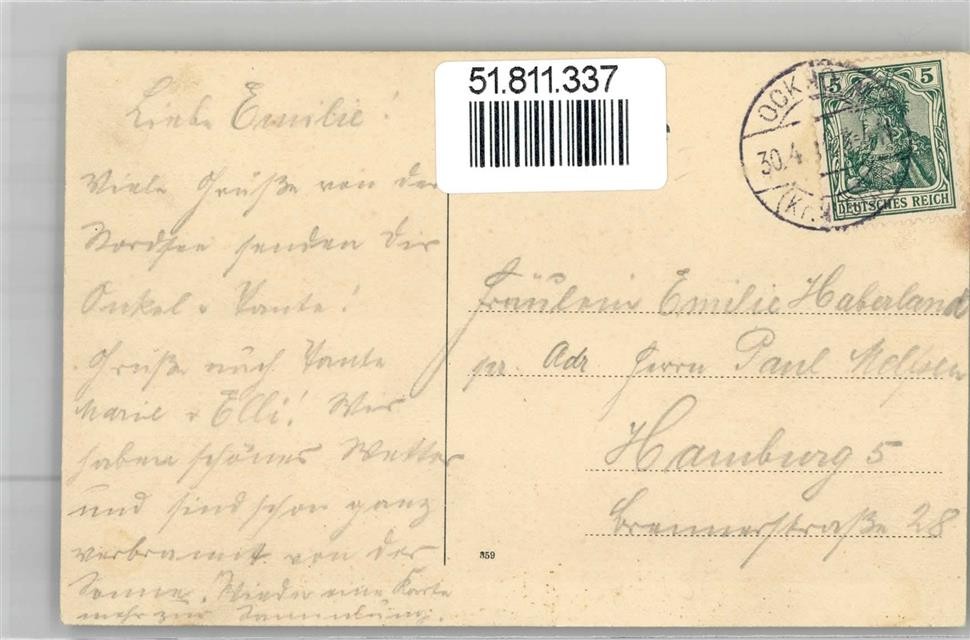 51.811.337
OCK
30.4.
(Kr.
5 5
DEUTSCHES REICH
Liebe Emilie!
Viele Grüße von der
Nordsee senden Dir
Onkel u Tante!
Grüße auch Tante
Marie u Elli! Wir
haben schönes Wetter
und sind schon ganz
verbrannt von der
Sonne. Wieder eine Karte
mehr zur Sammlung.
Fräulein Emilie Haberland
pr. Adr Herrn Paul
Hamburg 5
Brennerstraße 28
859